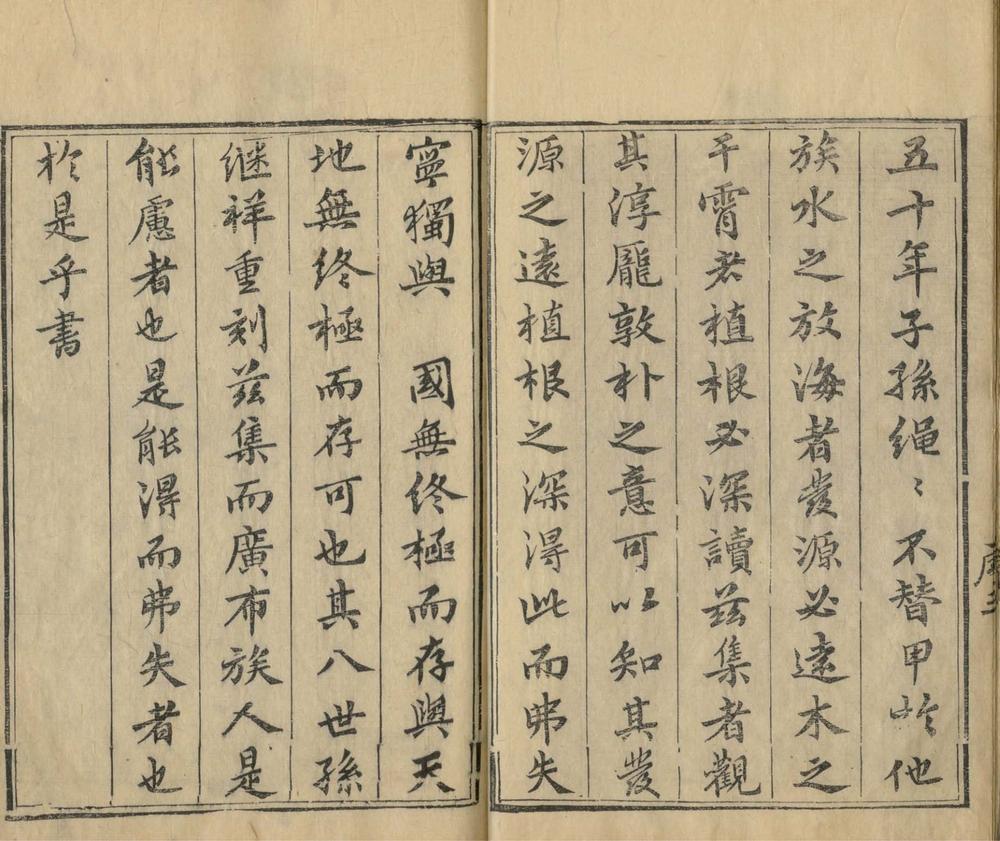 五十年子孫繩〻不替甲於他
族水之放海者發源必遠木之
干霄者植根必深讀茲集者觀
其淳龎敦朴之意可以知其發
源之遠植根之深得此而弗失
寧獨與　國無終極而存與天
地無終極而存可也其八世孫
継祥重刻茲集而廣布族人是
能慮者也是能得而弗失者也
於是乎書